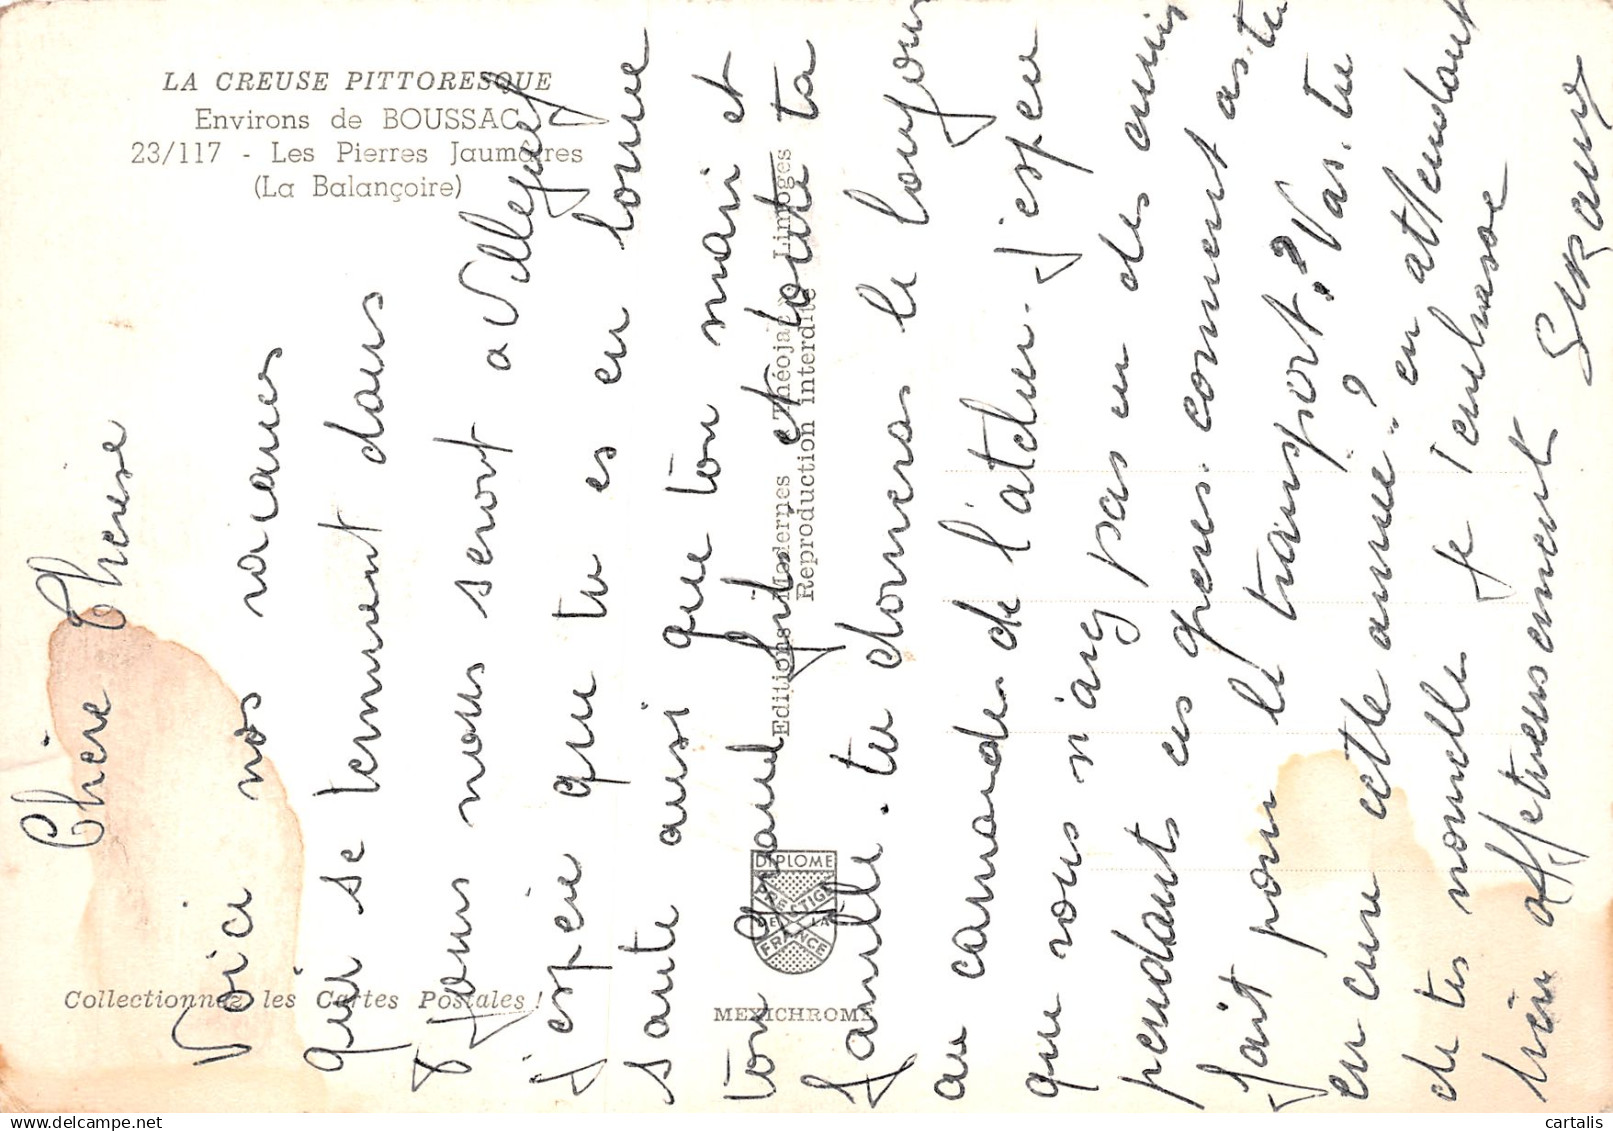 LA CREUSE PITTORESQUE
Environs de BOUSSAC
23/117 - Les Pierres Jaumâtres
(La Balançoire)
Editions Modernes Théojac Limoges
Reproduction interdite
DIPLOME
PRESTIGE
DE LA
FRANCE
Collectionnez les Cartes Postales !
MEXICHROME
Chère Therese
Voici nos vacances
qui se termment dans
jours nous seront a Villejuif
j'espère que tu es en bonne
sante ausi que ton mari et
ton Grand fils, et toute ta
famille. tu donneras le bonjour
au camarade de l'atelier. j'espere
que vous n'avez pas eu des ennuis
pendants ces greves. comment as. tu
fait pour le transport.? Vas. tu
en cure cette annee? en attendant
de tes nouvelles je t'embrasse
bien affectueusement Suzanne
cartalis